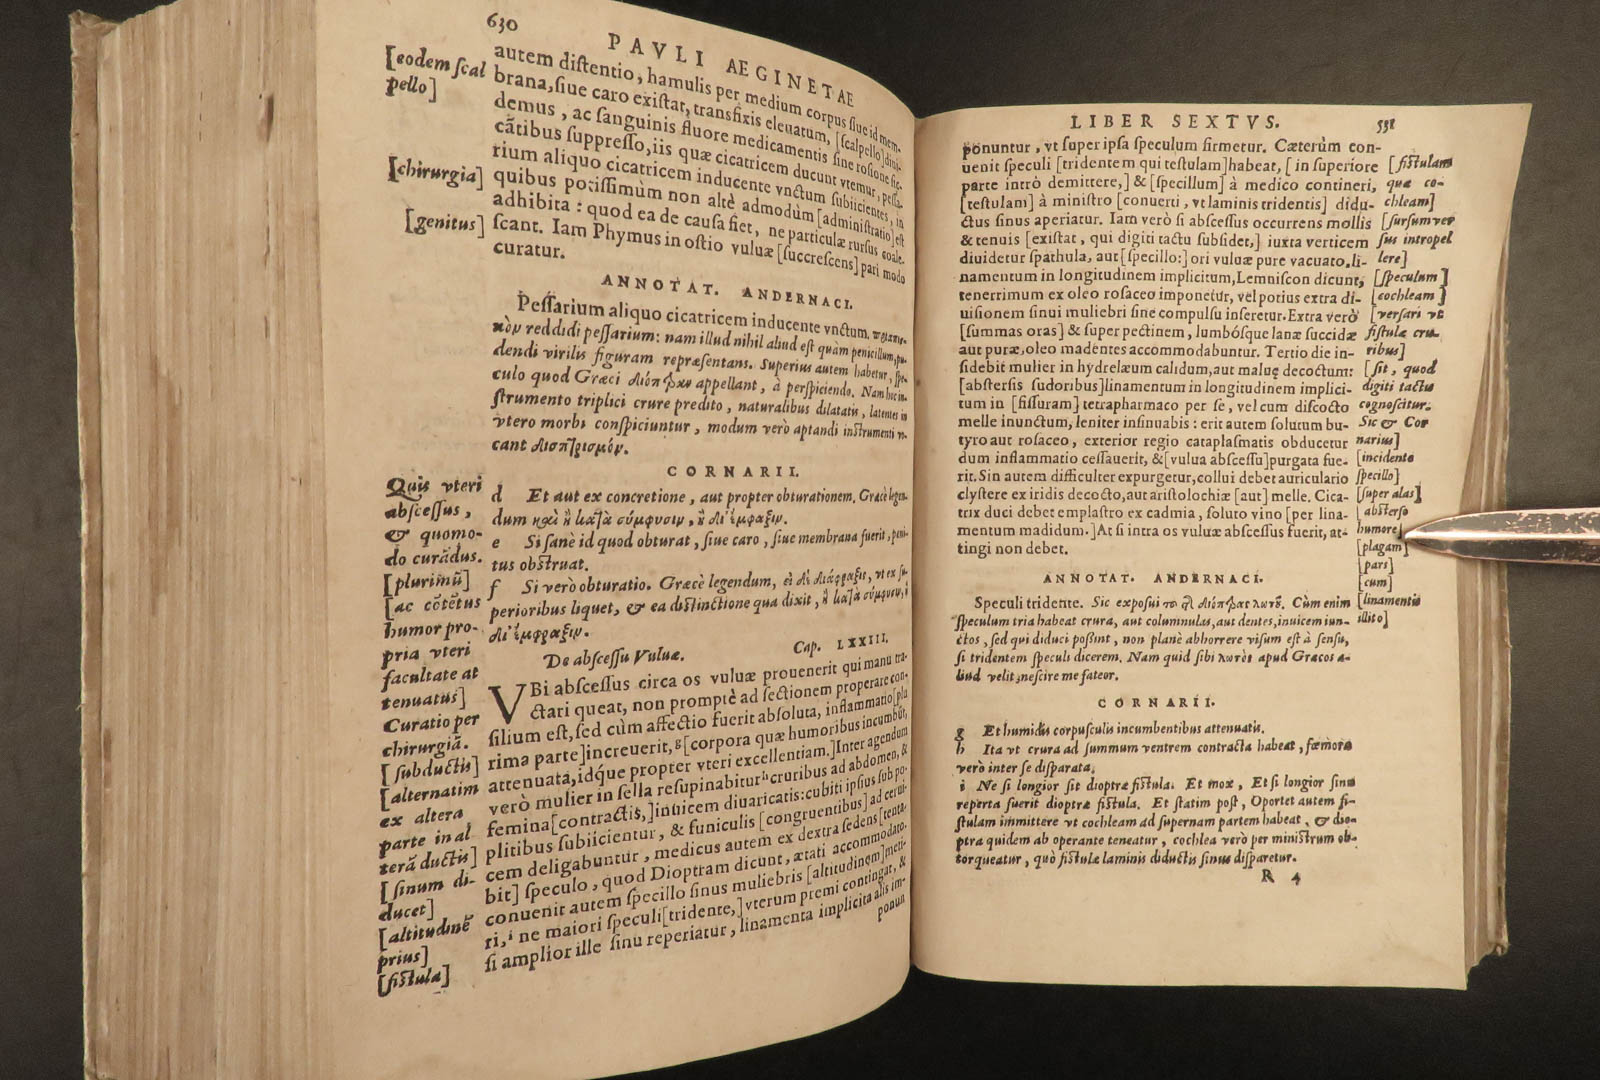 630
PAVLI AEGINETAE
[eodem ſcal
pello]
[chirurgia]
[genitus]
autem diſtentio, hamulis per medium corpus ſiue id mem-
brana, ſiue caro exiſtat, transfixis eleuatum, [ſcalpello] diui-
demus, ac ſanguinis fluore medicamentis ſine roſione ſic-
cãtibus ſuppreſſo, iis quæ cicatricem ducunt vtemur, peſſa-
rium aliquo cicatricem inducente vnctum ſubiicientes, in
quibus potiſſimùm non altè admodùm [adminiſtratio] eſt
adhibita: quod ea de cauſa fiet, ne particulæ rurſus coale-
ſcant. Iam Phymus in oſtio vuluæ [ſuccreſcens] pari modo
curatur.
ANNOTAT. ANDERNACI.
Peſſarium aliquo cicatricem inducente vnctum.
κὸν reddidi peſſarium: nam illud nihil aliud eſt quàm penicillum, pu-
dendi virilis figuram repræſentans. Superius autem habetur, ſpe-
culo quod Græci διόπτραν appellant, à perſpiciendo. Nam hoc in-
ſtrumento triplici crure predito, naturalibus dilatatis, latentes in
vtero morbi conſpiciuntur, modum verò aptandi inſtrumenti vo-
cant διοπτρισμόν.
CORNARII.
d Et aut ex concretione, aut propter obturationem. Græcè legen-
dum καὶ ἢ κατὰ σύμφυσιν, ἢ δι' ἔμφραξιν.
e Si ſanè id quod obturat, ſiue caro, ſiue membrana fuerit, peni-
tus obſtruat.
f Si verò obturatio. Græcè legendum, εἰ δὲ διάφραξις, vt ex ſu-
perioribus liquet, & ea diſtinctione qua dixit, ἢ κατὰ σύμφυσιν, ἢ
δι' ἔμφραξιν.
De abſceſſu Vuluæ. Cap. LXXIII.
Quis vteri
abſceſſus,
& quomo-
do curãdus.
[plurimũ]
[ac cõtẽtus
humor pro-
pria vteri
facultate at
tenuatus]
Curatio per
chirurgiã.
[ſubductis]
[alternatim
ex altera
parte in al
terã ductis]
[ſinum di-
ducet]
[altitudinẽ
prius]
[fiſtula]
VBi abſceſſus circa os vuluæ prouenerit qui manu tra-
ctari queat, non promptè ad ſectionem properare con-
ſilium eſt, ſed cùm affectio fuerit abſoluta, inflammatio [plu
rima parte] increuerit, g [corpora quæ humoribus incumbũt,
attenuata, idque propter vteri excellentiam.] Inter agendum
verò mulier in ſella reſupinabitur h cruribus ad abdomen, &
femina [contractis,] inuicem diuaricatis: cubiti ipſius ſub po-
plitibus ſubiicientur, & funiculis [congruentibus] ad cerui-
cem deligabuntur, medicus autem ex dextra ſedens [tenta-
bit] ſpeculo, quod Dioptram dicunt, ætati accommodato.
conuenit autem ſpecillo ſinus muliebris [altitudinem] meti-
ri, i ne maiori ſpeculi [tridente,] vterum premi contingat, &
ſi amplior ille ſinu reperiatur, linamenta implicita alis im-
ponun
LIBER SEXTVS.
531
ponuntur, vt ſuper ipſa ſpeculum firmetur. Cæterùm con-
uenit ſpeculi [tridentem qui teſtulam] habeat, [in ſuperiore
parte intrò demittere,] & [ſpecillum] à medico contineri,
[teſtulam] à miniſtro [conuerti, vt laminis tridentis] didu-
ctus ſinus aperiatur. Iam verò ſi abſceſſus occurrens mollis
& tenuis [exiſtat, qui digiti tactu ſubſidet,] iuxta verticem
diuidetur ſpathula, aut [ſpecillo:] ori vuluæ pure vacuato, li-
namentum in longitudinem implicitum, Lemniſcon dicunt,
tenerrimum ex oleo roſaceo imponetur, vel potius extra di-
uiſionem ſinui muliebri ſine compulſu inſeretur. Extra verò
[ſummas oras] & ſuper pectinem, lumbóſque lanæ ſuccidæ
aut puræ, oleo madentes accommodabuntur. Tertio die in-
ſidebit mulier in hydrelæum calidum, aut maluę decoctum:
[abſterſis ſudoribus] linamentum in longitudinem implici-
tum in [fiſſuram] tetrapharmaco per ſe, vel cum diſcocto
melle inunctum, leniter inſinuabis: erit autem ſolutum bu-
tyro aut roſaceo, exterior regio cataplaſmatis obducetur
dum inflammatio ceſſauerit, & [vulua abſceſſu] purgata fue-
rit. Sin autem difficulter expurgetur, collui debet auriculario
clyſtere ex iridis decocto, aut ariſtolochiæ [aut] melle. Cica-
trix duci debet emplaſtro ex cadmia, ſoluto vino [per lina-
mentum madidum.] At ſi intra os vuluæ abſceſſus fuerit, at-
tingi non debet.
[fiſtulam
quæ co-
chleam]
[ſurſum ver
ſus intropel
lere]
[ſpeculum]
[cochleam]
[verſari vt
fiſtulæ cru-
ribus]
[ſit, quod
digiti tactu
cognoſcitur.
Sic & Cor
narius]
[incidente
ſpecillo]
[ſuper alas]
[abſterſo
humore]
[plagam]
[pars]
[cum]
[linamentis
illito]
ANNOTAT. ANDERNACI.
Speculi tridente. Sic expoſui Cùm enim
ſpeculum tria habeat crura, aut columnulas, aut dentes, inuicem iun-
ctos, ſed qui diduci poßint, non planè abhorrere viſum eſt à ſenſu,
ſi tridentem ſpeculi dicerem. Nam quid ſibi λωτὸς apud Græcos a-
liud velit, neſcire me fateor.
CORNARII.
g Et humidis corpuſculis incumbentibus attenuatis.
h Ita vt crura ad ſummum ventrem contracta habeat, fœmora
verò inter ſe diſparata.
i Ne ſi longior ſit dioptræ fiſtula. Et mox, Et ſi longior ſinu
reperta fuerit dioptræ fiſtula. Et ſtatim poſt, Oportet autem fi-
ſtulam immittere vt cochleam ad ſupernam partem habeat, & dio-
ptra quidem ab operante teneatur, cochlea verò per miniſtrum ob-
torqueatur, quò fiſtulæ laminis diductis ſinus diſparetur.
R 4